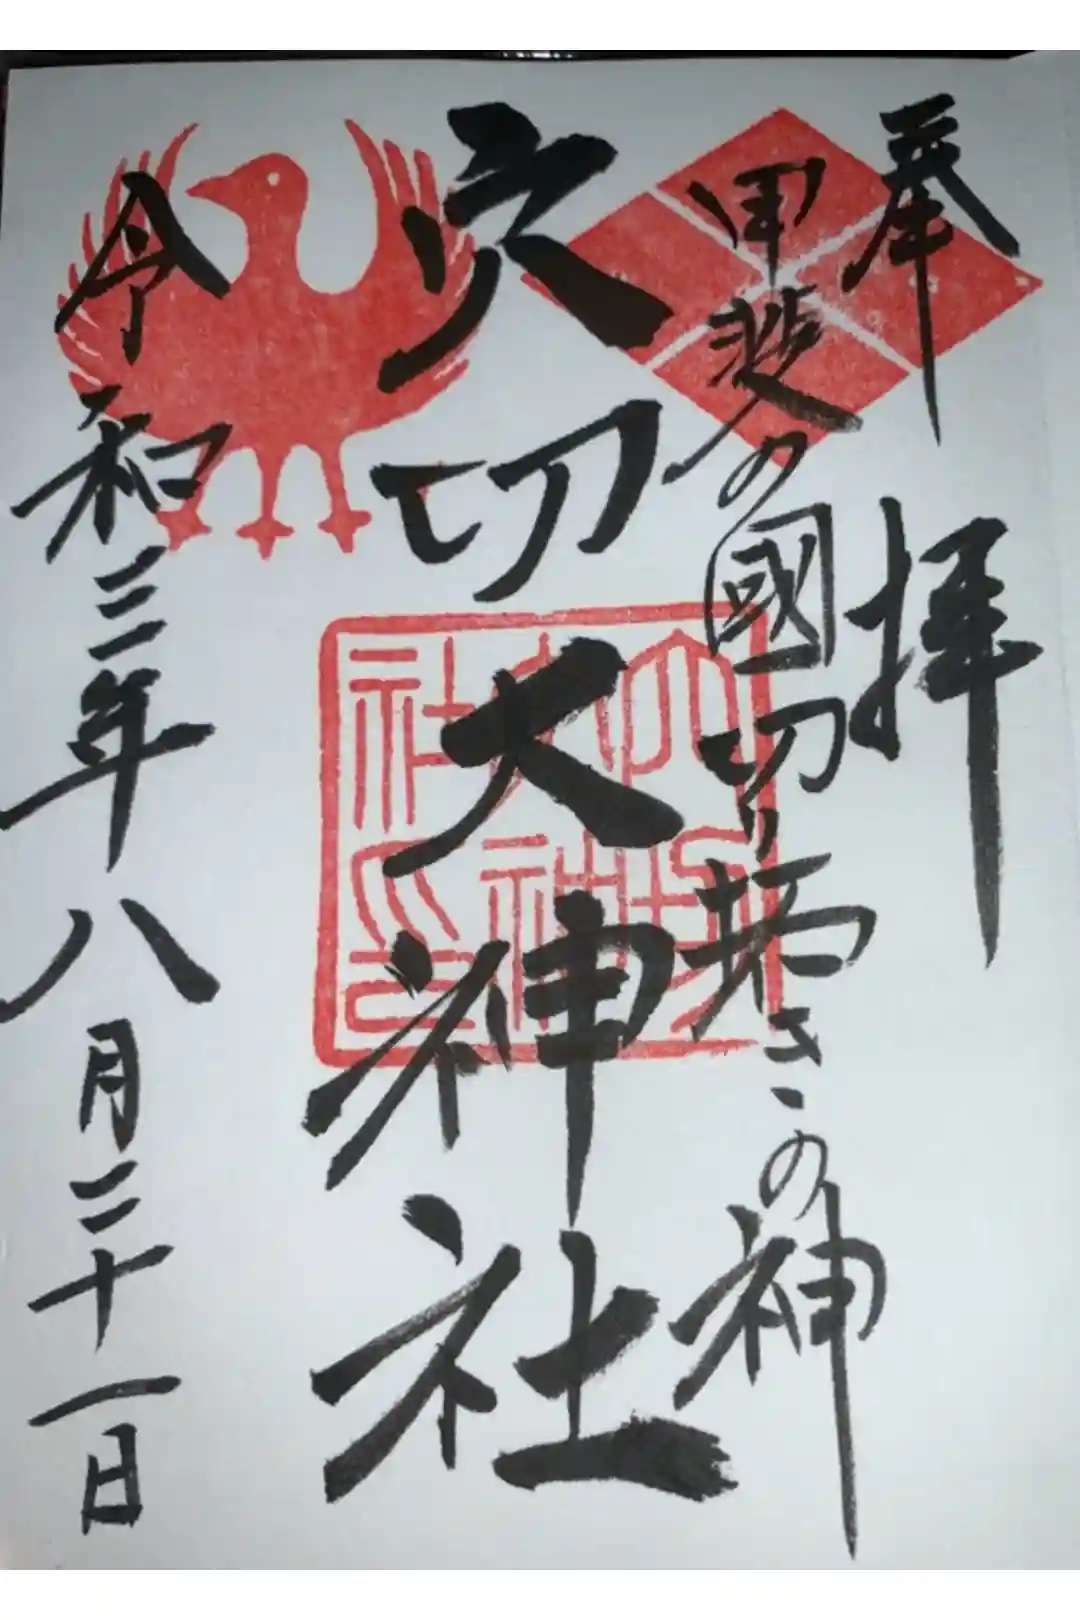 奉拝
甲斐の國切り拓きの神
穴切大神社
穴切大神社印
令和三年八月二十一日